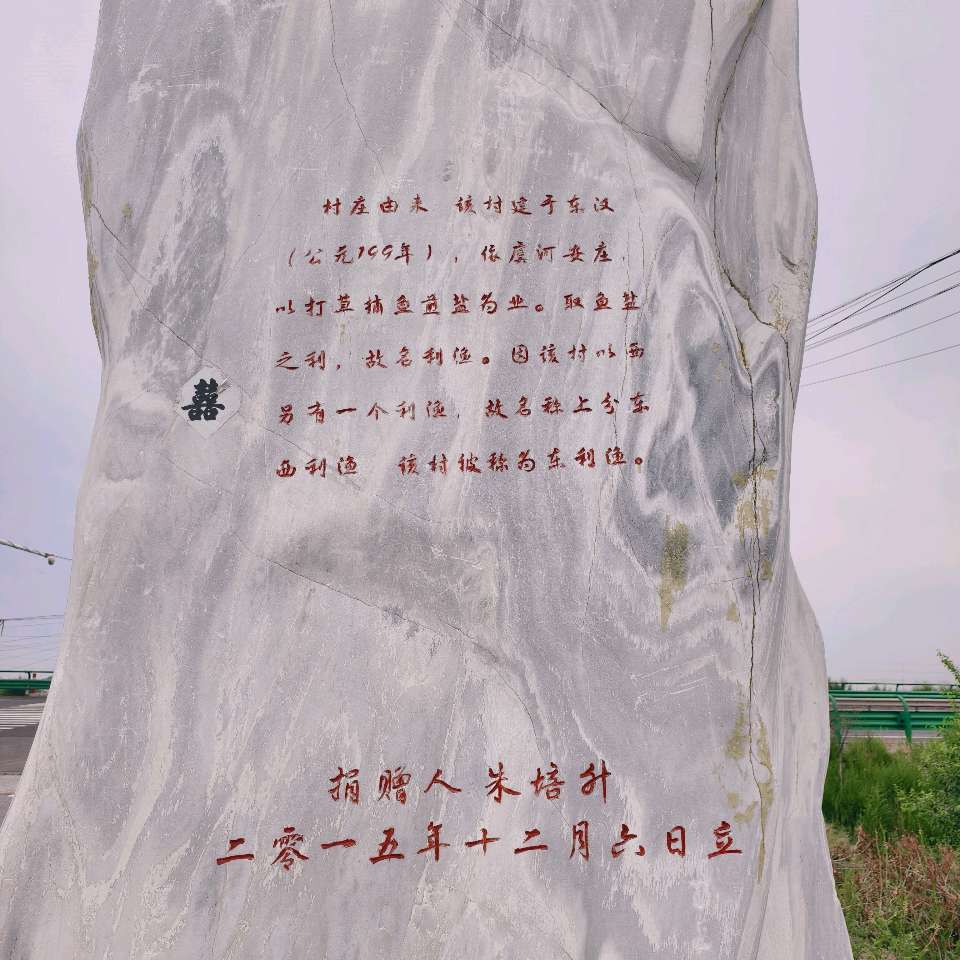 村庄由来 该村建于东汉
（公元199年），依虞河安庄，
以打草捕鱼煎盐为业。取鱼盐
之利，故名利渔。因该村以西
另有一个利渔，故名称上分东
西利渔 该村被称为东利渔。
囍
捐赠人 朱培升
二零一五年十二月六日立